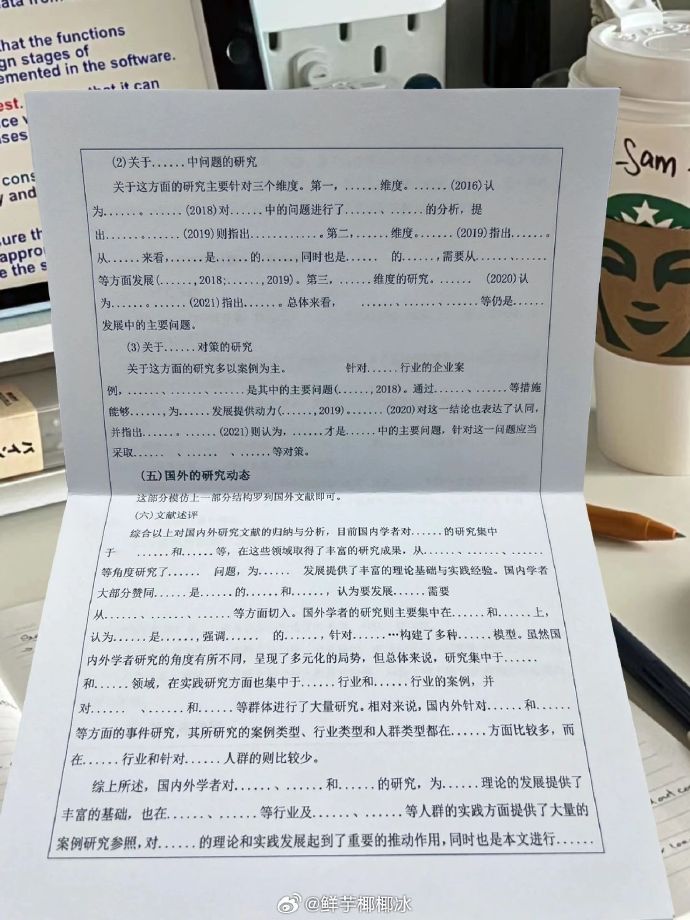 that the functions
gn stages of
emented in the software.
est.
that it can
cons
y and
ure th
appro
e the s
Sam
(2)关于......中问题的研究
关于这方面的研究主要针对三个维度。第一,......维度。......(2016)认
为......。......(2018)对......中的问题进行了......、......的分析,提
出......。......(2019)则指出............。第二,......维度。......(2019)指出......。
从......来看,......是......的......,同时也是...... 的......,需要从......、......
等方面发展(......,2018;......,2019)。第三,......维度的研究。...... (2020)认
为......。......(2021)指出......。总体来看, ......、......、......等仍是......
发展中的主要问题。
(3)关于......对策的研究
关于这方面的研究多以案例为主。 针对......行业的企业案
例,......、......、......是其中的主要问题(......,2018)。通过......、......等措施
能够......,为......发展提供动力(......,2019)。......(2020)对这一结论也表达了认同,
并指出......。......(2021)则认为,......才是......中的主要问题,针对这一问题应当
采取...... 、......、......等对策。
(五)国外的研究动态
这部分模仿上一部分结构罗列国外文献即可。
(六)文献述评
综合以上对国内外研究文献的归纳与分析,目前国内学者对......的研究集中
于 ......和......等,在这些领域取得了丰富的研究成果,从......、......、......
等角度研究了...... 问题,为...... 发展提供了丰富的理论基础与实践经验。国内学者
大部分赞同......是......的......和......,认为要发展......需要
从......、......、......等方面切入。国外学者的研究则主要集中在......和......上,
认为......是......,强调...... 的......,针对......…构建了多种......模型。虽然国
内外学者研究的角度有所不同,呈现了多元化的局势,但总体来说,研究集中于......
和......领域,在实践研究方面也集中于......行业和......行业的案例,并
对...... 、......和......等群体进行了大量研究。相对来说,国内外针对......和......
等方面的事件研究,其所研究的案例类型、行业类型和人群类型都在......方面比较多,而
在......行业和针对......人群的则比较少。
综上所述,国内外学者对......、......和......的研究,为......理论的发展提供了
丰富的基础,也在......、......等行业及......、......等人群的实践方面提供了大量的
案例研究参照,对......的理论和实践发展起到了重要的推动作用,同时也是本文进行......
@鲜芋椰椰冰